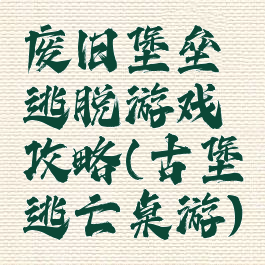 废旧堡垒
逃脱游戏
攻略(古堡
逃亡桌游)